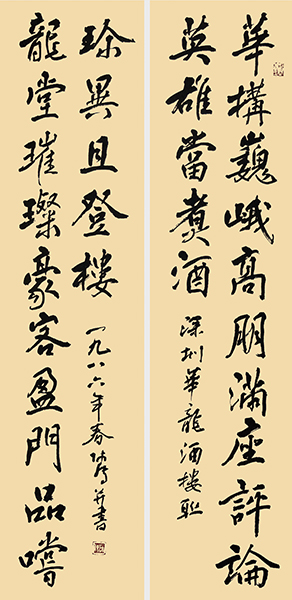 華搆巍峨高朋滿座評論
英雄當煮酒
深圳華龍酒樓聯
龍堂璀璨豪客盈門品嚐
珍異且登樓
一九八六年春
并書